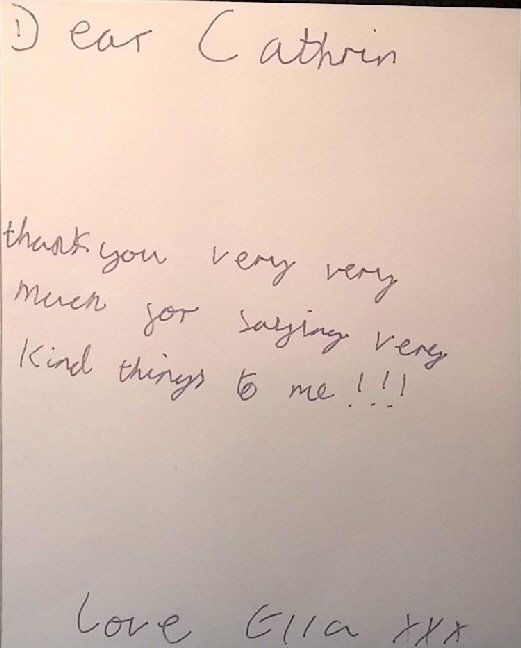 Dear Cathrin
thankyou very very
much for saying very
kind things to me!!!
love Ella xxx